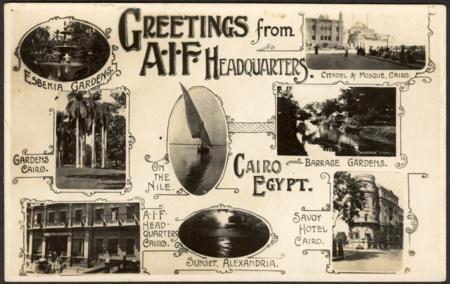 GREETINGS from
A·I·F HEADQUARTERS.
ESBEKIA GARDENS.
CITADEL & MOSQUE, CAIRO.
GARDENS
CAIRO.
ON
THE
NILE.
CAIRO
EGYPT.
BARRAGE GARDENS.
A·I·F
HEAD-
QUARTERS
CAIRO.
SUNSET, ALEXANDRIA.
SAVOY
HOTEL
CAIRO.